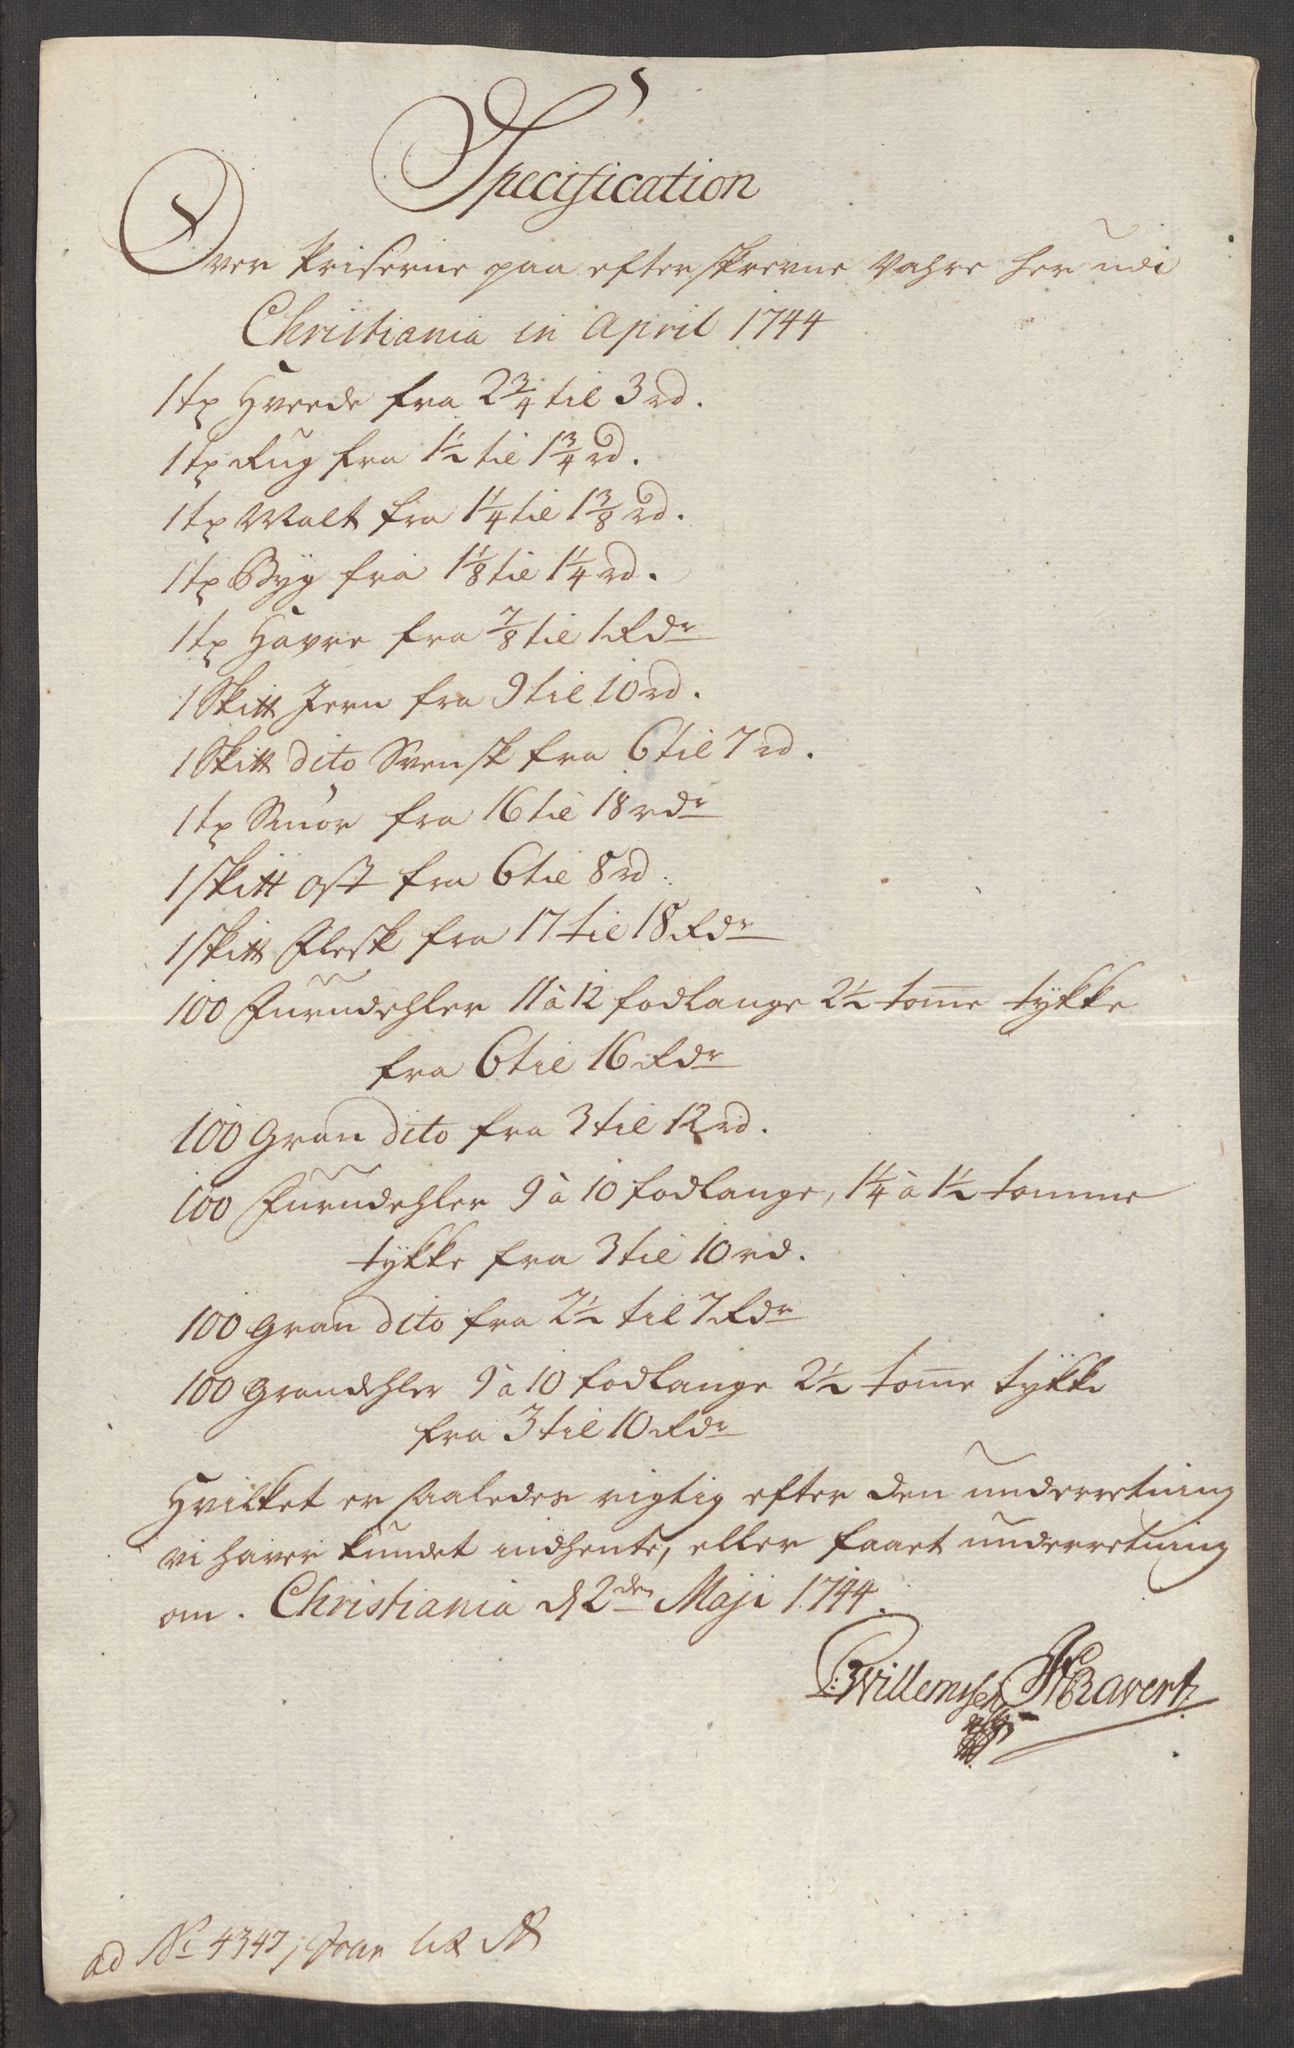 Specification
Over Priserne paa efterskrevne Vahre her udi
Christiania in April 1744
1 tp Hveede fra 2 3/4 til 3 rd.
1 tp Rug fra 1 1/2 til 1 3/4 rd.
1 tp Malt fra 1 1/4 til 1 3/8 rd.
1 tp Byg fra 1 1/8 til 1 1/4 rd.
1 tp Havre fra 7/8 til 1 Rdr
1 Skitt Jern fra 9 til 10 rd.
1 Skitt dito Svensk fra 6 til 7 rd.
1 tp Smør fra 16 til 18 rdr
1 skitt ost fra 6 til 8 rd.
1 skitt Flesk fra 17 til 18 Rdr
100 Furudehler 11 à 12 fodlange 2 1/2 tom̅e tykke
fra 6 til 16 Rdr
100 Gran dito fra 3 til 12 rd.
100 Furudehler 9 à 10 fodlange, 1 1/4 à 1 1/2 tomme
tykke fra 3 til 10 rd.
100 Gran dito fra 2 1/2 til 7 Rdr
100 Grandehler 9 à 10 fodlange 2 1/2 tom̅e tykke
fra 3 til 10 Rdr
Hvilket er saaledes rigtig efter den underretning
vi haver kundet indhente, eller faaet underretning
om. Christiania d 2den Maji 1744.
Willemsen Ravert
ad No 4347,